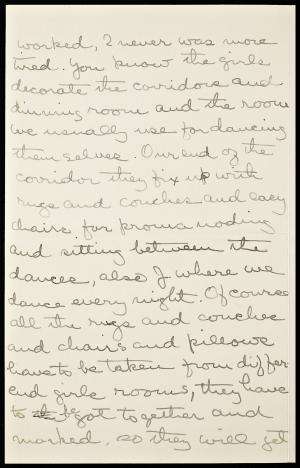 worked, I never was more
tired. You know the girls
decorate the corridors and
dinning room and the room
we usually use for dancing
them selves. Our end of the
corridor they fix up with
rugs and couches and easy
chairs, for promanading
and sitting between the
dances, also J where we
dance every night. Of course
all the rugs and couches
and chairs and pillows
have to be taken from differ-
ent girls rooms, they have
to be got together and
marked, so they will get